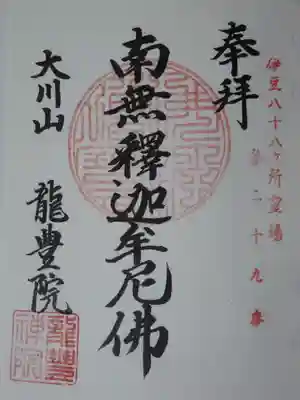 伊豆八十八ヶ所霊場
第二十九番
奉拝
南無釋迦牟尼佛
大川山 龍豊院
龍豊禅院